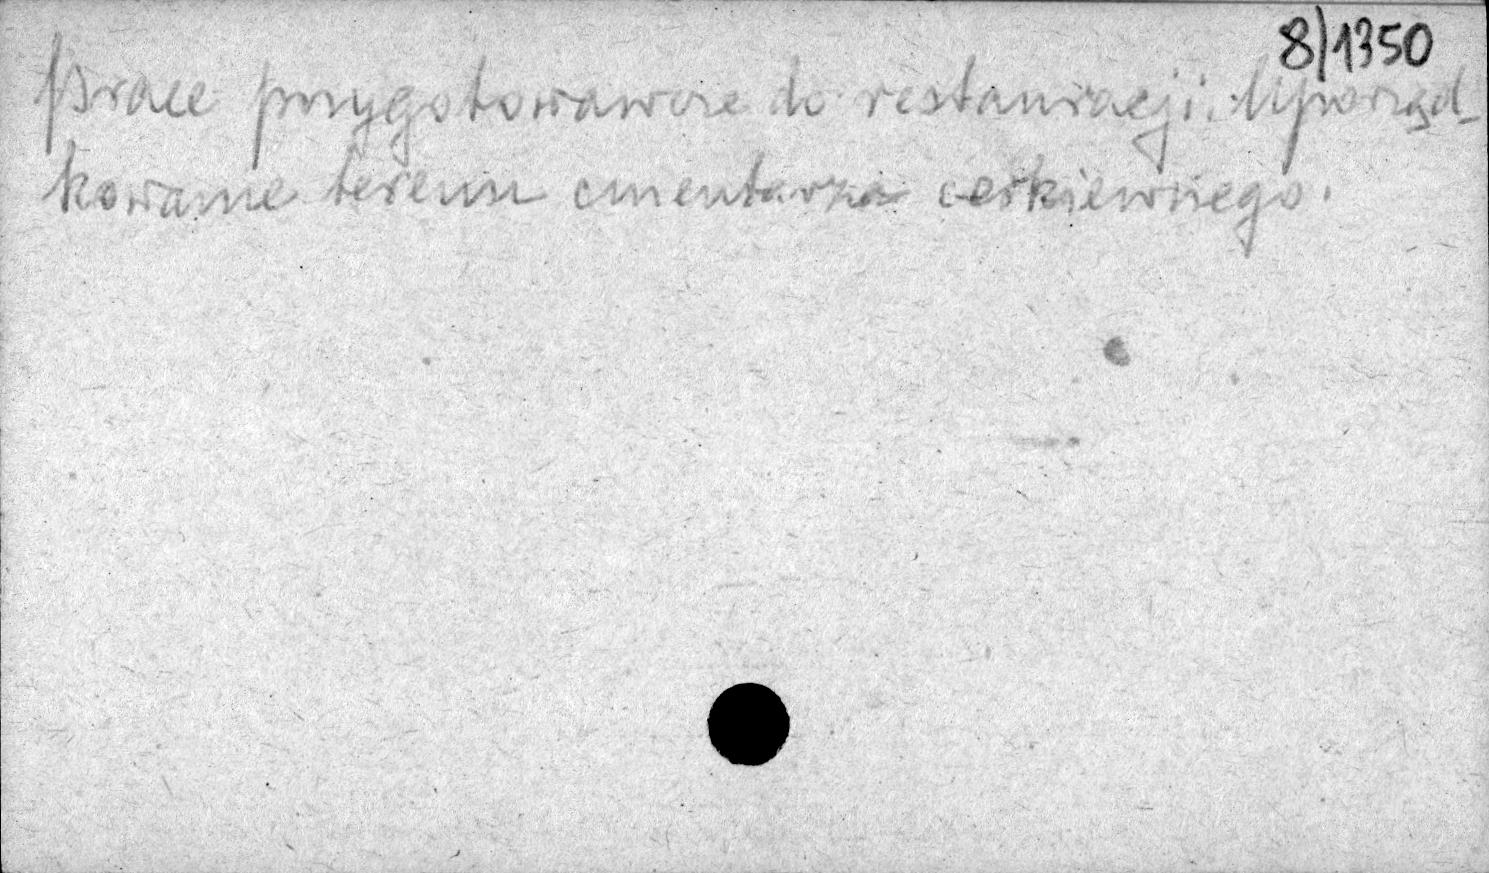 8/1350
Prace przygotowawcze do restauracji. Uporząd-
kowanie terenu cmentarza cerkiewnego.